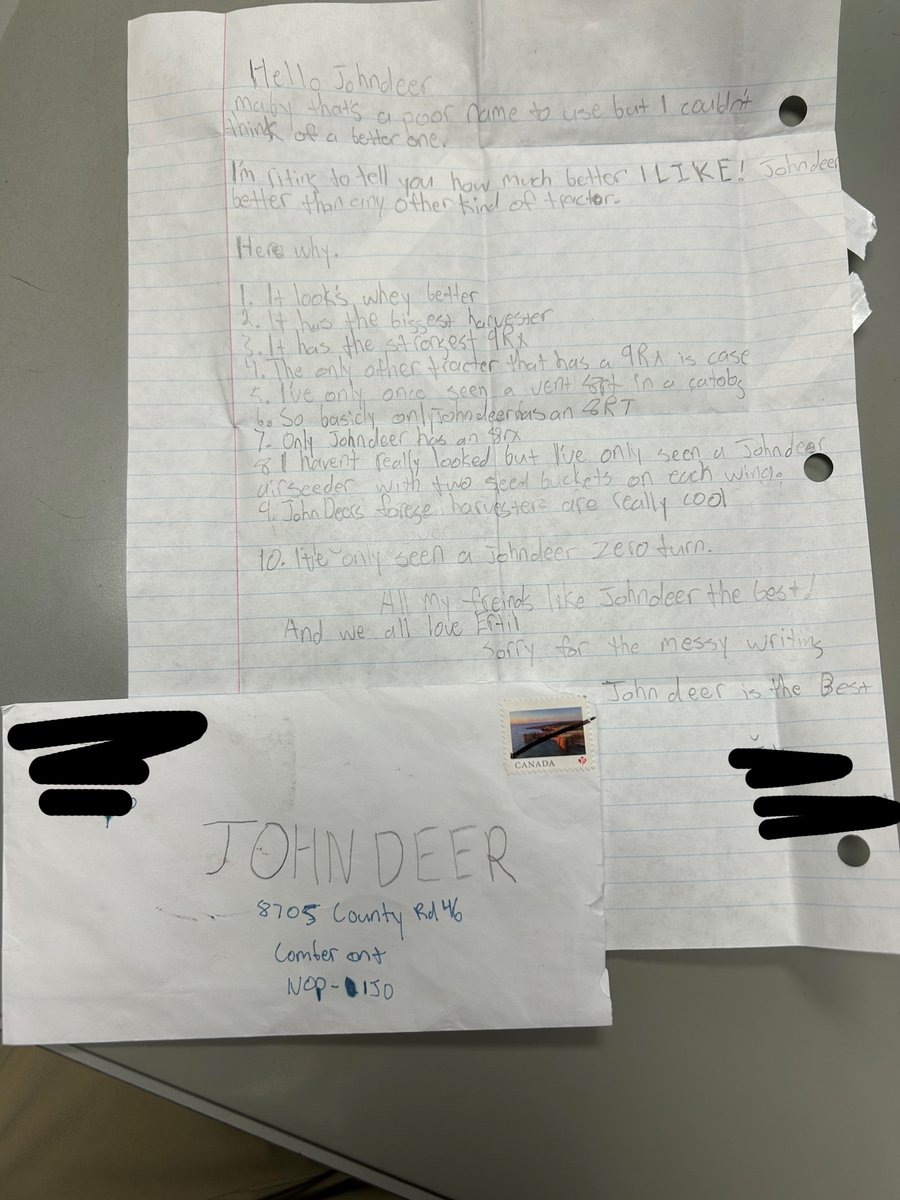 Hello Johndeer
maby that's a poor name to use but I couldn't
think of a better one.
I'm riting to tell you how much better I LIKE! Johndeer
better than any other kind of tractor.
Here why.
1. It look's whey better
2. It has the biggest harvester
3. It has the strongest 9RX
4. The only other tracter that has a 9RX is case
5. I've only once seen a vent 8rt in a
6. So basicly only Johndeer has an 8RT
7. Only Johndeer has an 8rx
8 I havent really looked but I've only seen a Johndeer
airseeder with two seed buckets on each wing.
9. John Deers forege harvesters are really cool
10. I've only seen a Johndeer zero turn.
All my freinds like Johndeer the best!
And we all love Ertil
Sorry for the messy writing
John deer is the Best
CANADA
P
JOHN DEER
8705 County Rd 46
Comber ont
NOP-1J0